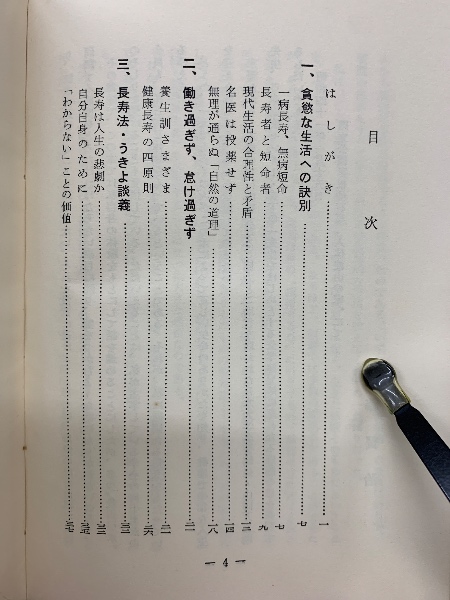 目次
はしがき……一
一、貪慾な生活への訣別……七
一病長寿、無病短命……七
長寿者と短命者……九
現代生活の合理性と矛盾……一二
名医は投薬せず……一四
無理が通らぬ「自然の道理」……一八
二、働き過ぎず、怠け過ぎず……二一
養生訓さまざま……二一
健康長寿の四原則……二六
三、長寿法・うきよ談義……三三
長寿は人生の悲劇か……三三
自分自身のために……三五
「わからない」ことの価値……三七
— 4 —